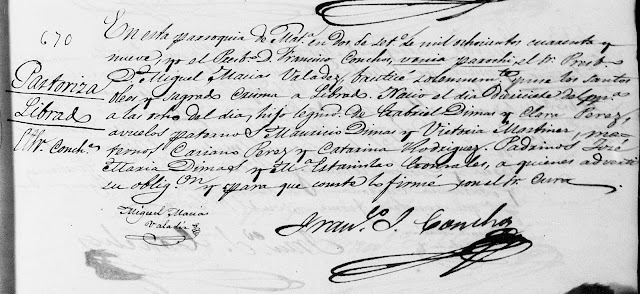 670
Pastoriza
Librad
En esta parroquia de Mat.ª en dos de set.e de mil ochocientos cuarenta y
nueve, yo el Presb.º D. Francisco Concho, venia parochi, el Sr. Presb.
D.n Miguel Macias Valadez, bautice solemnem.te puse los santos
oleos y sagrad crisma a Librad. Nacio el dia
a las ocho del dia, hijo legmo. de Gabriel Dimas y Clara Perez,
avuelos paterno Mauricio Dimas y Victoria Martinez, ma-
ternos Perez y Catarina Rodriguez. Padrinos José
Maria Dimas y M.ª Estanislao Gonzales, a quienes adverti
su oblig.on y para que conste lo firmé con el Sr. Cura
Miguel Macia
Valadez
Fran.co J. Concho